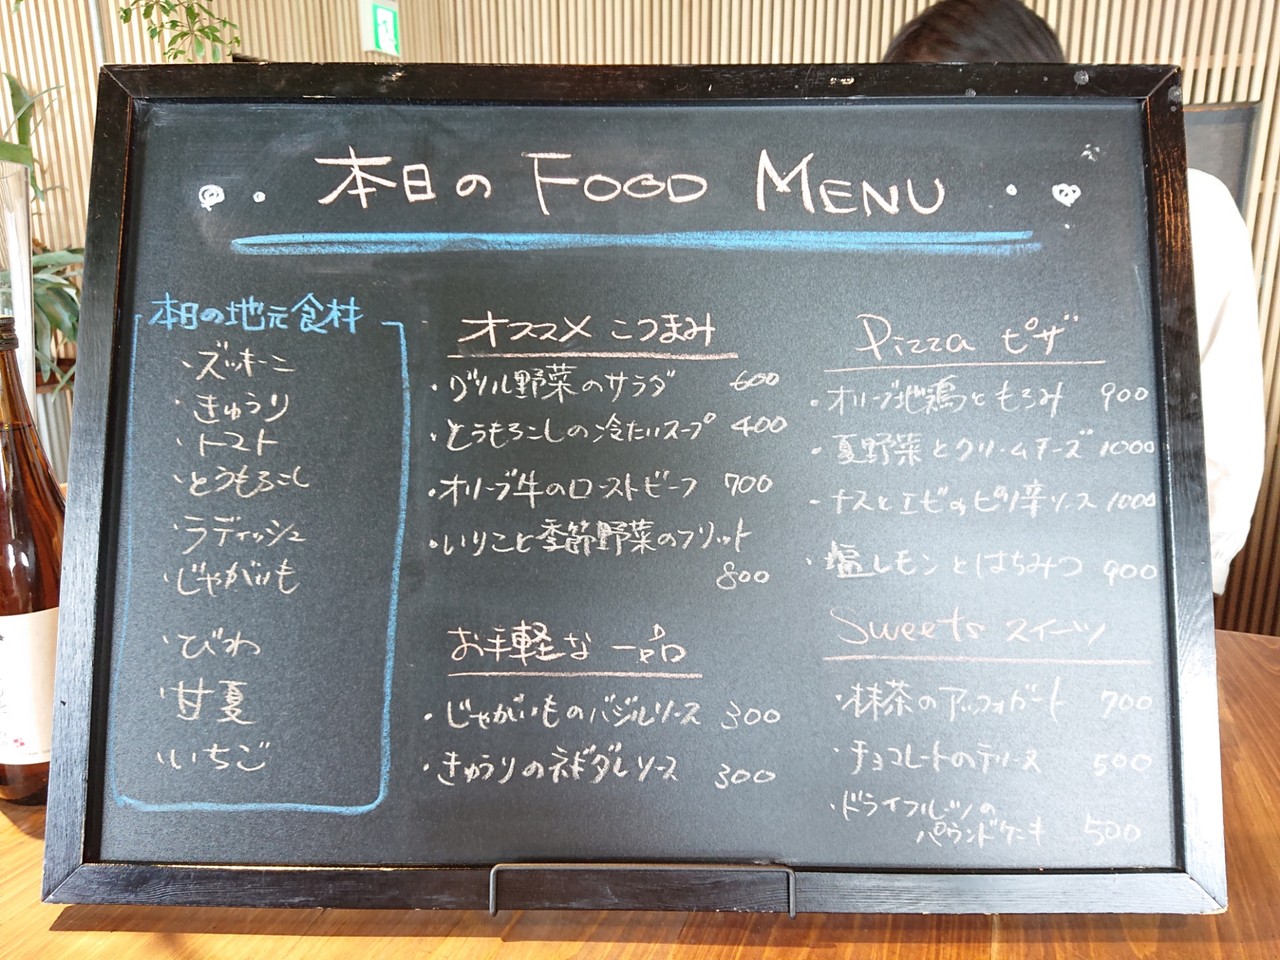 本日の FOOD MENU
本日の地元食材
・ズッキーニ
・きゅうり
・トマト
・とうもろこし
・ラディッシュ
・じゃがいも
・びわ
・甘夏
・いちご
オススメ こつまみ
・グリル野菜のサラダ 600
・とうもろこしの冷たいスープ 400
・オリーブ牛のローストビーフ 700
・いりこと季節野菜のフリット
800
お手軽な一品
・じゃがいものバジルソース 300
・きゅうりのネギダレソース 300
Pizza ピザ
・オリーブ地鶏ともろみ 900
・夏野菜とクリームチーズ 1000
・ナスとエビのピリ辛ソース 1000
・塩レモンとはちみつ 900
Sweets スイーツ
・抹茶のアッフォガート 700
・チョコレートのテリーヌ 500
・ドライフルーツの
パウンドケーキ 500